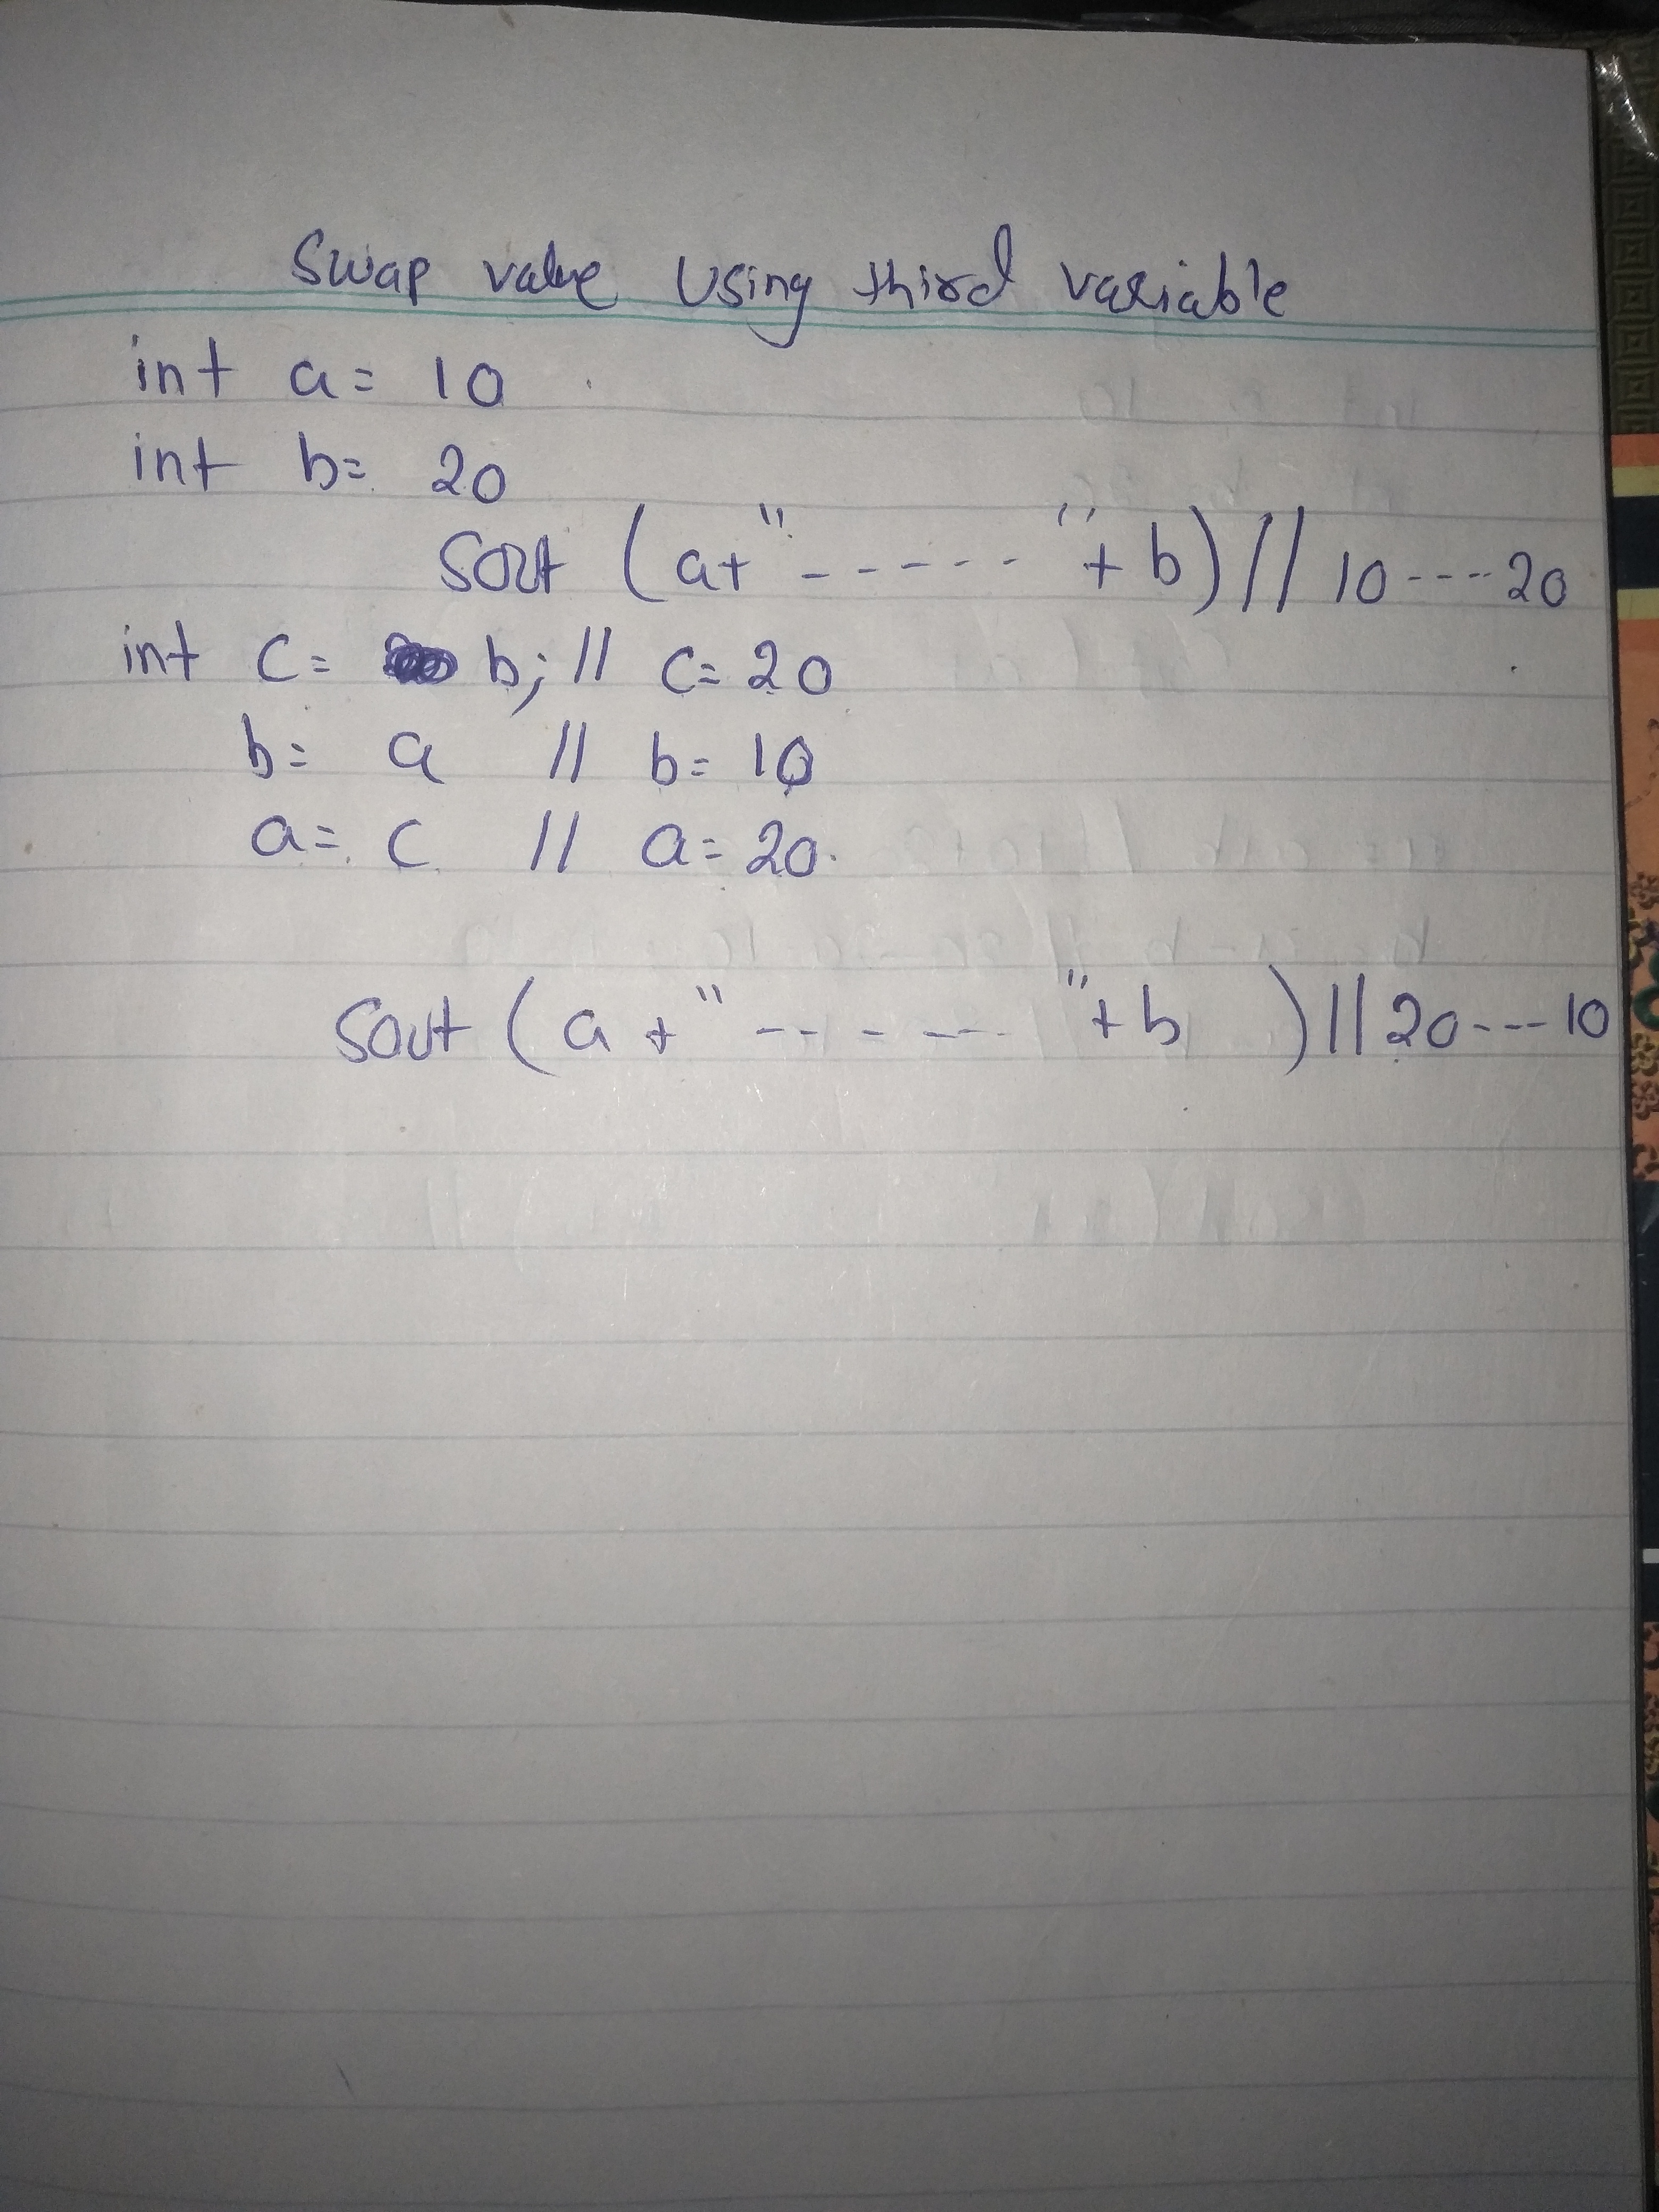 Swap value Using third variable
int a = 10
int b = 20
Sout (a+ "------" + b) // 10----20
int c = b; // c = 20
b = a // b = 10
a = c // a = 20.
Sout (a + "------" + b) // 20---10